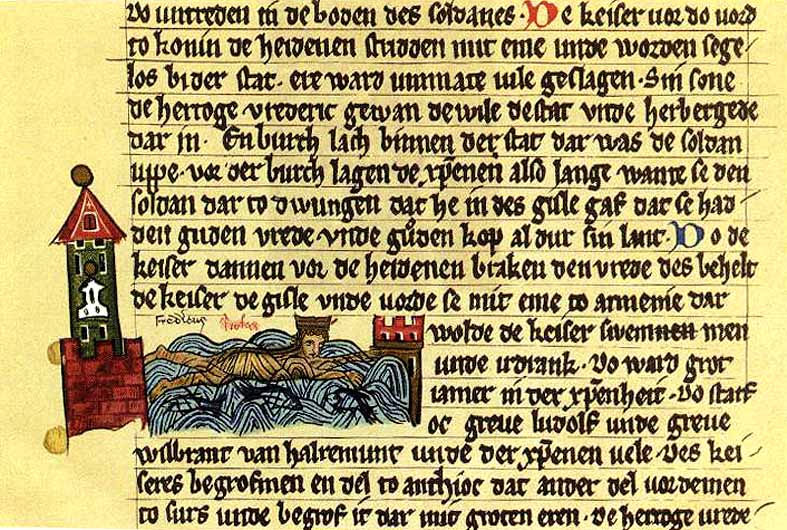 vo untreden in de boden des soldanes. De keiser vor do vord
to konin de heidenen stridden mit eme unde worden sege-
los bi der stat. ere ward unmate vile geslagen. Sin sone
de hertoge vrederic gewan de wile de stat unde herbergede
dar in. En burch lach binnen der stat dar was de soldan
uppe. vor der burch lagen de xpenen also lange wante se den
soldan dar to dwungen dat he in des gisle gaf dat se had-
den guden vrede unde guden kop al dur sin lant. Do de
keiser dannen vor de heidenen braken den vrede des behelt
de keiser de gisle unde vorde se mit eme to armenie dar
fredicus
wolde de keiser swemmen
unde irdrank. Do ward grot
iamer in der xpenheit. Do starf
oc greve ludolf unde greve
wilbrant van halremunt unde der xpenen vele. Des kei-
seres begrof men en del to anthioc dat ander del vorde men
to surs unde begrof it dar mit groten eren. de hertoge vrede-